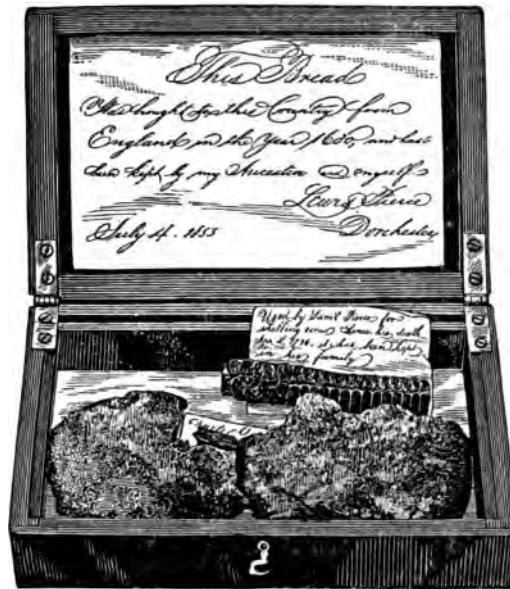 This Bread
Was brought to this Country from
England in the Year 1630, and has
been kept by my Ancestors and myself.
Lewis Pierce
July 4. 1853 Dorchester
Used by Sam'l Pierce for
shelling corn Since his death
1768, it has been kept
in his family